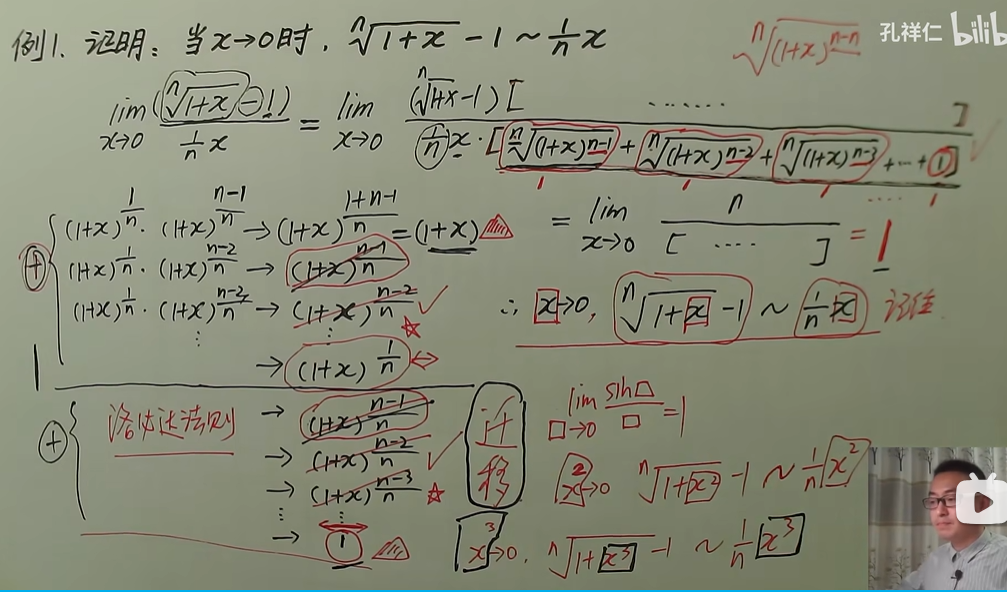 例1. 证明：当x→0时, ⁿ√(1+x) - 1 ~ (1/n)x
ⁿ√((1+x)^(n-n))
孔祥仁 bilib
lim x→0 (ⁿ√(1+x) - 1) / ((1/n)x) = lim x→0 (ⁿ√(1+x) - 1)[ ...... ] / ((1/n)x·[ⁿ√((1+x)^(n-1)) + ⁿ√((1+x)^(n-2)) + ⁿ√((1+x)^(n-3)) + ... + 1])
1 1 1 .... 1
(1+x)^(1/n) · (1+x)^((n-1)/n) → (1+x)^((1+n-1)/n) = (1+x)
= lim x→0 n / [ .... ] = 1
⊕ (1+x)^(1/n) · (1+x)^((n-2)/n) → (1+x)^((n-1)/n)
(1+x)^(1/n) · (1+x)^((n-3)/n) → (1+x)^((n-2)/n) ✓ ☆
⋮ ⋮
→ (1+x)^(1/n) ⇔
∴ x→0, ⁿ√(1+x) - 1 ~ (1/n)x 记住
⊕ 洛必达法则 → (1+x)^((n-1)/n)
→ (1+x)^((n-2)/n) ✓
→ (1+x)^((n-3)/n) ☆
⋮
→ 1
迁移
lim □→0 sin□/□ = 1
x²→0 ⁿ√(1+x²) - 1 ~ (1/n)x²
x³→0, ⁿ√(1+x³) - 1 ~ (1/n)x³